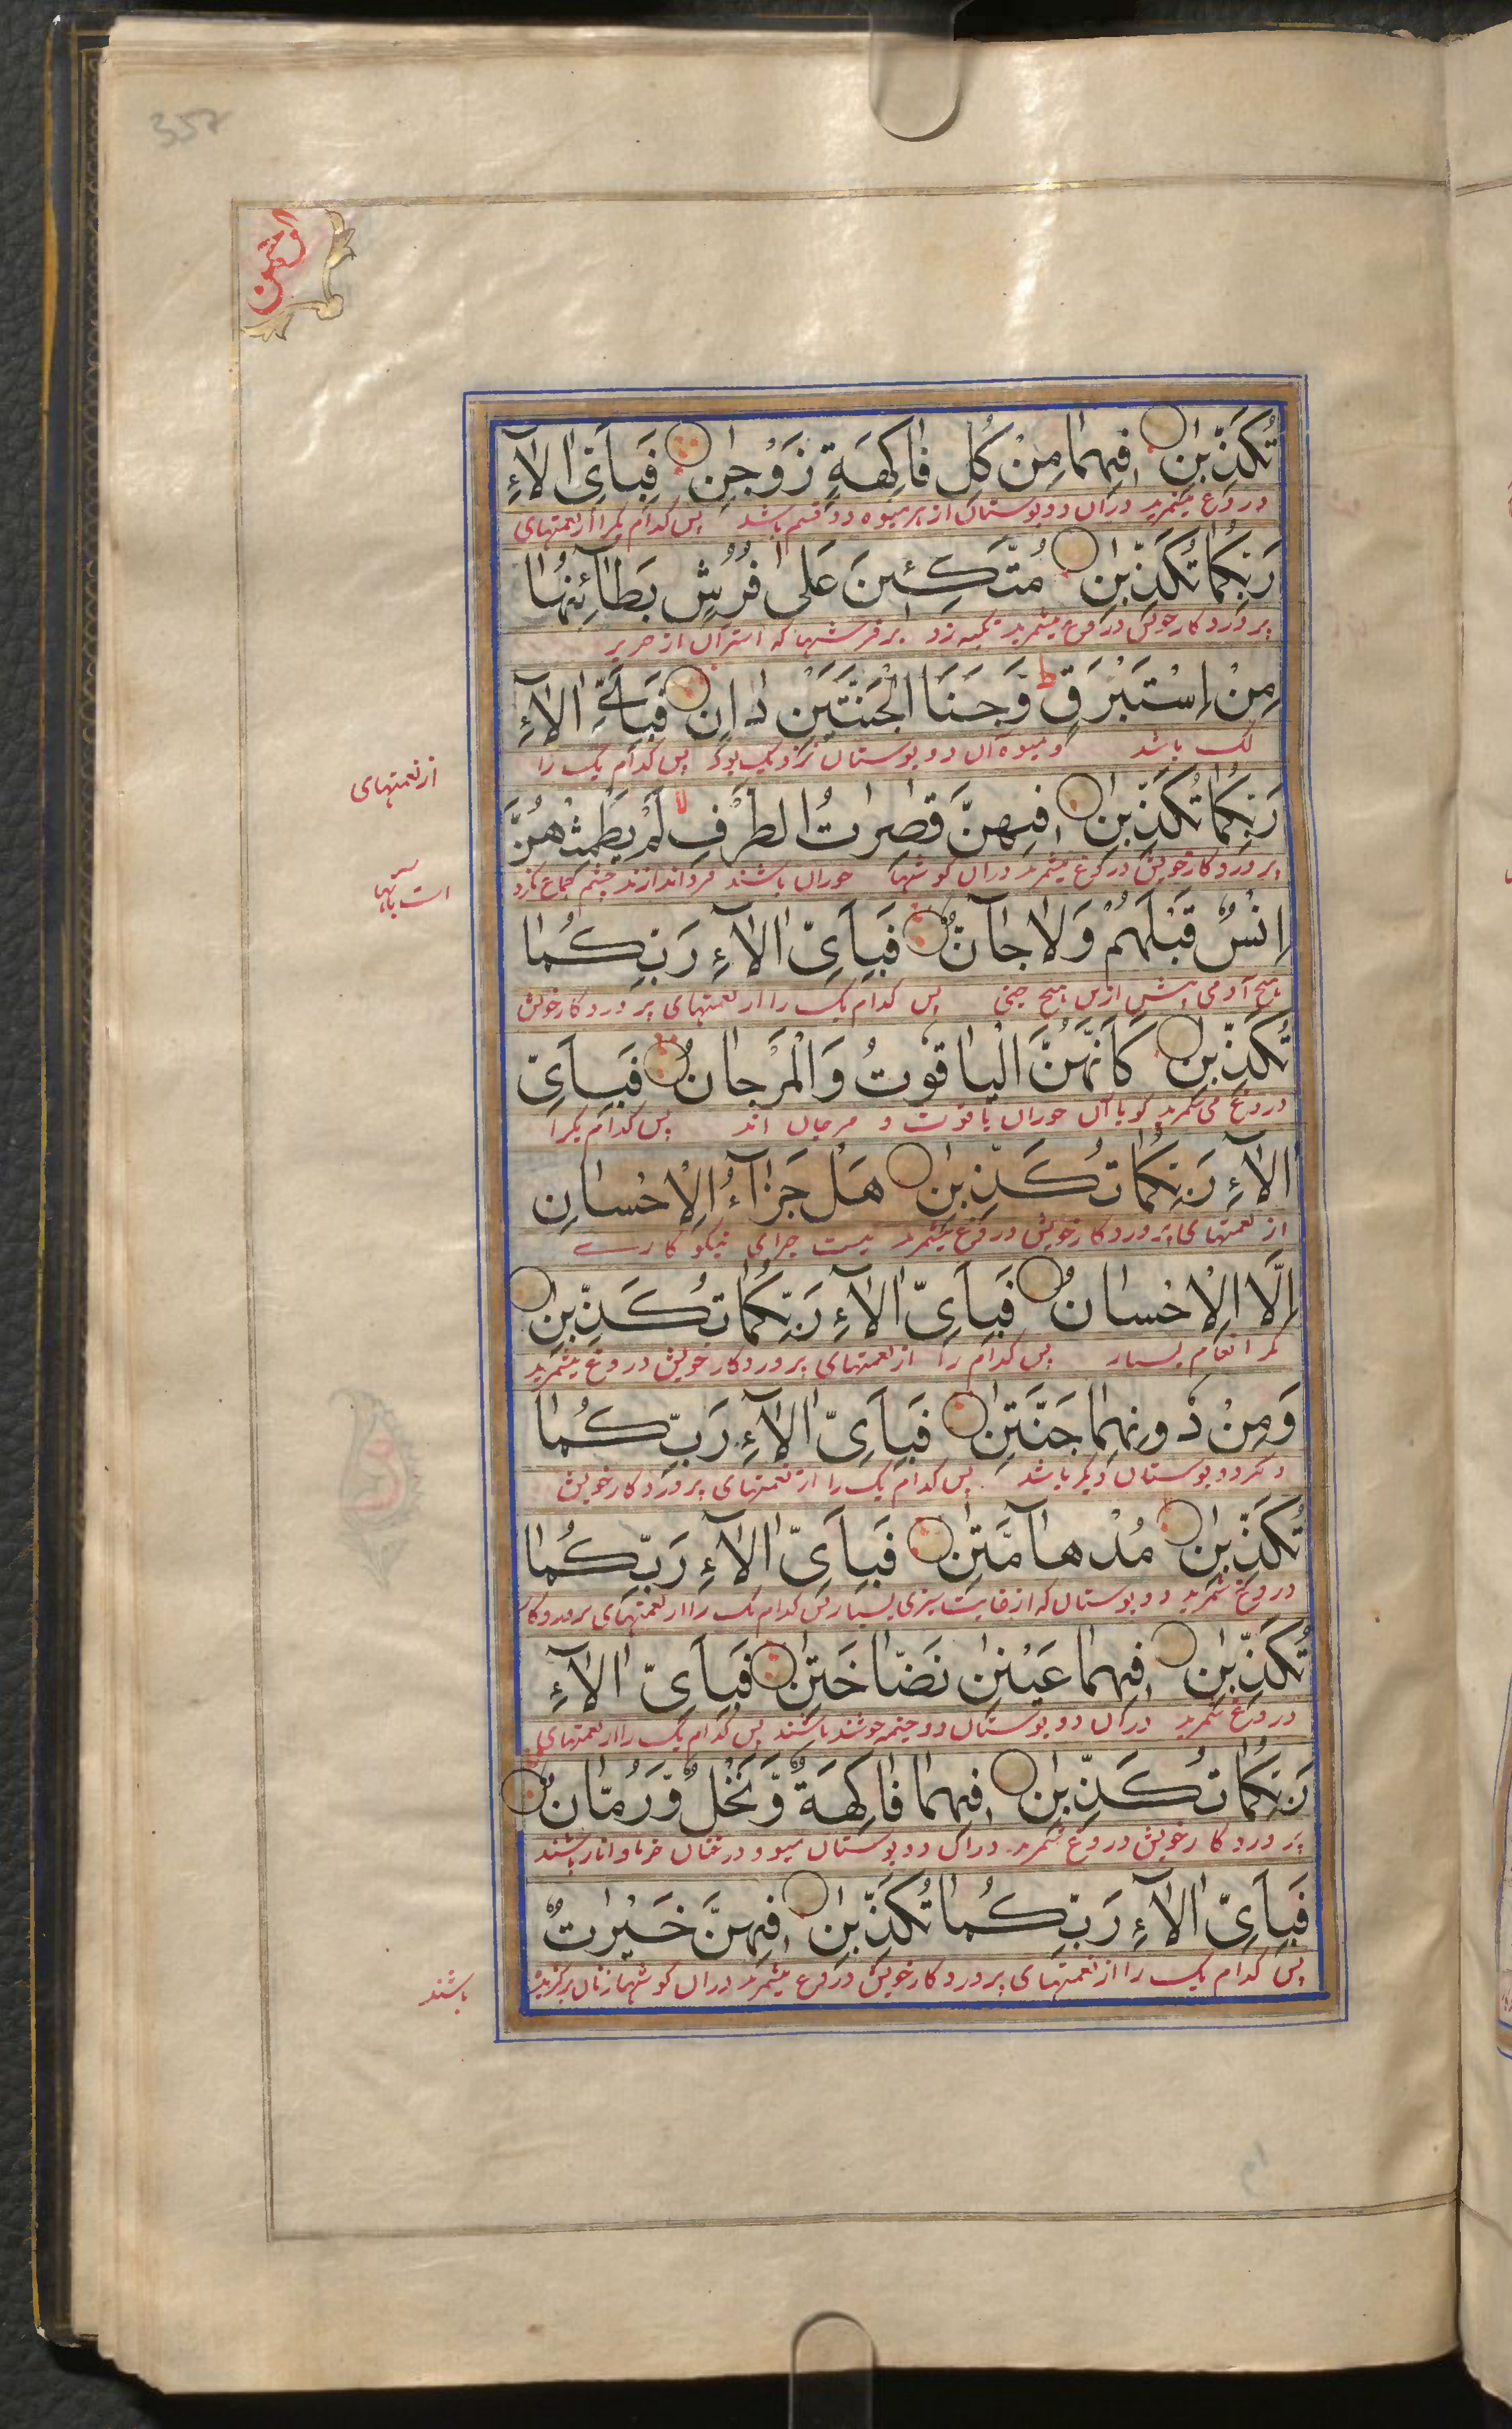 357
الرحمن
تُكَذِّبٰنِ فِیهِمٰا مِنْ كُلِّ فٰاكِهَةٍ زَوْجٰنِ فَبِاَیِّ اٰلاٰۤءِ
دروغ میشمرید دران دو بوستان از هر میوه دو قسم باشد پس کدام یکرا از نعمتهای
رَبِّكُمٰا تُكَذِّبٰنِ مُتَّكِـِٕینَ عَلٰی فُرُشٍۭ بَطٰاۤئِنُهٰا
پروردکار خویش دروغ میشمرید تکیه زد برفرشها که استر آن از حریر
مِنْ اِسْتَبْرَقٍ ط وَجَنَا الْجَنَّتَیْنِ دٰانٍ فَبِاَیِّ اٰلاٰۤءِ
باشد و میوه آن دو بوستان نزدیک بود پس کدام یک را
از نعمتهای
رَبِّكُمٰا تُكَذِّبٰنِ فِیهِنَّ قٰصِرٰتُ الطَّرْفِ لا لَمْ یَطْمِثْهُنَّ
پروردکار خویش دروغ میشمرید دران کوشکها حوران باشند فرواندازند چشم جماع نکرد
است بآنها
اِنْسٌ قَبْلَهُمْ وَلاٰ جٰاۤنٌّ فَبِاَیِّ اٰلاٰۤءِ رَبِّكُمٰا
هیچ آدمی پیش ازین هیچ جنی پس کدام یک را از نعمتهای پروردکار خویش
تُكَذِّبٰنِ كَاَنَّهُنَّ الْیٰاقُوتُ وَالْمَرْجٰانُ فَبِاَیِّ
دروغ می شمرید کویا آن حوران یاقوت و مرجان اند پس کدام یکرا
اٰلاٰۤءِ رَبِّكُمٰا تُكَذِّبٰنِ هَلْ جَزٰاۤءُ الْاِحْسٰانِ
از نعمتهای پروردکار خویش دروغ میشمرید نیست جزای نیکو کارے
اِلَّا الْاِحْسٰانُ فَبِاَیِّ اٰلاٰۤءِ رَبِّكُمٰا تُكَذِّبٰنِ
مکر انعام بسیار پس کدام را از نعمتهای پروردکار خویش دروغ میشمرید
وَمِنْ دُونِهِمٰا جَنَّتٰنِ فَبِاَیِّ اٰلاٰۤءِ رَبِّكُمٰا
دو بوستان دیکر باشد پس کدام یک را از نعمتهای پروردکار خویش
تُكَذِّبٰنِ مُدْهٰاۤمَّتٰنِ فَبِاَیِّ اٰلاٰۤءِ رَبِّكُمٰا
دروغ شمرید دو بوستان که از غایت سبزی بسیار پس کدام یک را از نعمتهای پروردکار
تُكَذِّبٰنِ فِیهِمٰا عَیْنٰنِ نَضّٰاخَتٰنِ فَبِاَیِّ اٰلاٰۤءِ
دروغ شمرید دران دو بوستان دو چشمه جوشنده باشند پس کدام یک را از نعمتهای
رَبِّكُمٰا تُكَذِّبٰنِ فِیهِمٰا فٰاكِهَةٌ وَّنَخْلٌ وَّرُمّٰانٌ
پروردکار خویش دروغ شمرید دران دو بوستان میوه و درختان خرما و انار باشند
فَبِاَیِّ اٰلاٰۤءِ رَبِّكُمٰا تُكَذِّبٰنِ فِیهِنَّ خَیْرٰتٌ
پس کدام یک را از نعمتهای پروردکار خویش دروغ میشمرید دران کوشکها زنان برکزیده
باشند